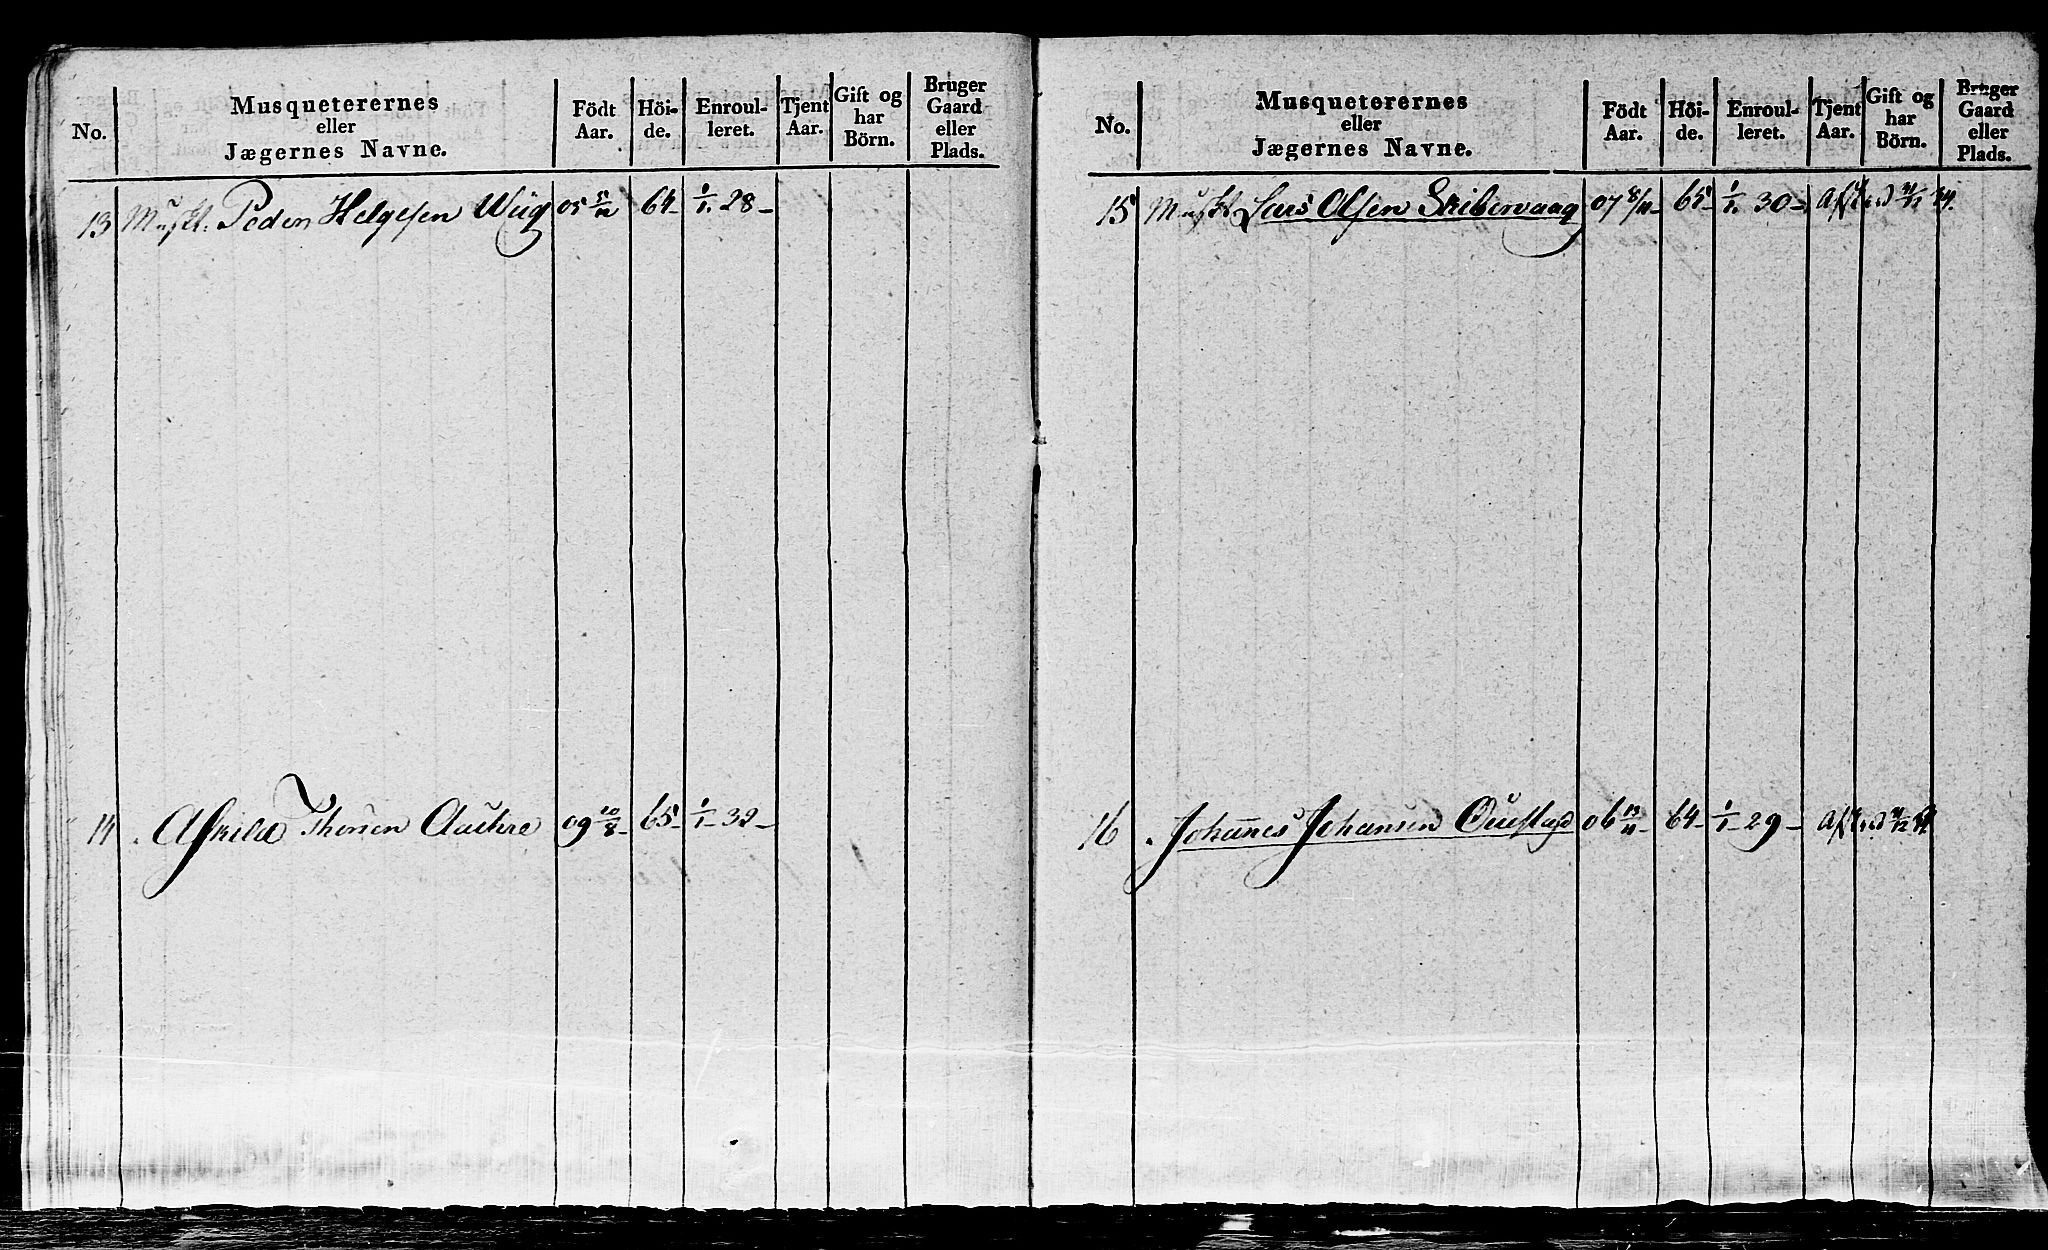 No. Musqueterernes eller Jægernes Navne. Födt Aar. Höi-de. Enroul-leret. Tjent Aar. Gift og har Börn. Bruger Gaard eller Plads.
13 Muskt. Peder Helgesen Wiig 05 64 1/1 28
14 Askild Thorsen 09 20/8 65 1/1 32
No. Musqueterernes eller Jægernes Navne. Födt Aar. Höi-de. Enroul-leret. Tjent Aar. Gift og har Börn. Bruger Gaard eller Plads.
15 Muskt Lars Olsen Skibervaag 07 8/11 65 1/1 30 Afsked 34
16 Johannes Johansen 06 13/11 64 1/1 29 Afsked 34